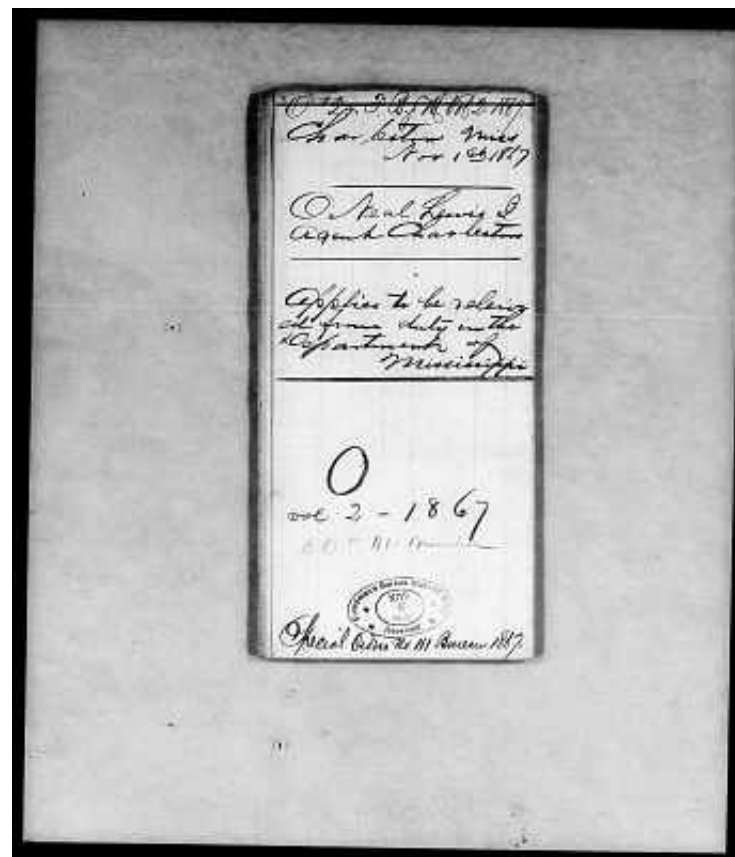 Vol 2 1867
Charleston Miss
Nov 1st 1867
O Neal Lewis I
Agent Charleston
Applies to be reliev
ed from duty in the
Department of
Mississippi
O
vol 2 - 1867
Special Orders No 111 Bureau 1867.